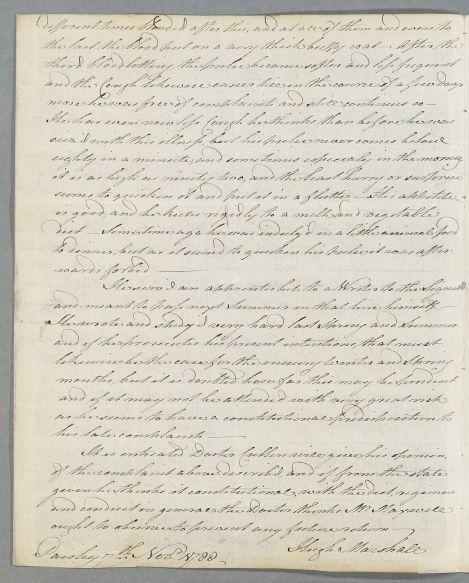 different times blooded after this, and at each of them and even to
the last the blood put on a very thick buffy coat — After the
third bloodletting, the pulse became softer and less frequent
and the Cough likewise easier & in the course of a few days
more he was free of complaints and still continues so —
He has even now less cough he thinks than before he was
seiz'd with this illness but his pulse never comes below
eighty in a minute, and sometimes especially in the morning
it is as high as ninety two, and the least hurry or surprise
seems to quicken it and put it in a flutter — His appetite
is good and he keeps rigidly to a milk and vegetable
diet — Some time ago he was indulg'd in a little animal food
to dinner, but as it seem'd to quicken his Pulse it was after
wards forbid —
He is now an apprentice to a Writer to the Signet
and meant to pass next Summer in that line himself
He wrote and study'd very hard last Spring and Summer
and if he prosecutes his present intentions, that must
likewise be the case for the ensuing Winter and Spring
months, but it is doubted how far this may be prudent
and if it may not be attended with very great risk
as he seems to have a constitutional predisposition to
his late complaints —
It is entreated Doctor Cullen will give his opinion
of the complaint above describ'd and if from the state
given he thinks it constitutional, with the diet, regimen
and conduct in general the Doctor thinks Mr
ought to observe to prevent any future return —
Hugh Marshall
Paisley 7th Novr. 1788